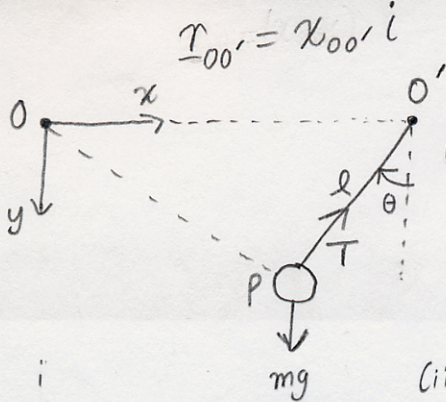 r_OO' = x_OO' i
O x O'
y
l θ
T
P
i mg (ii